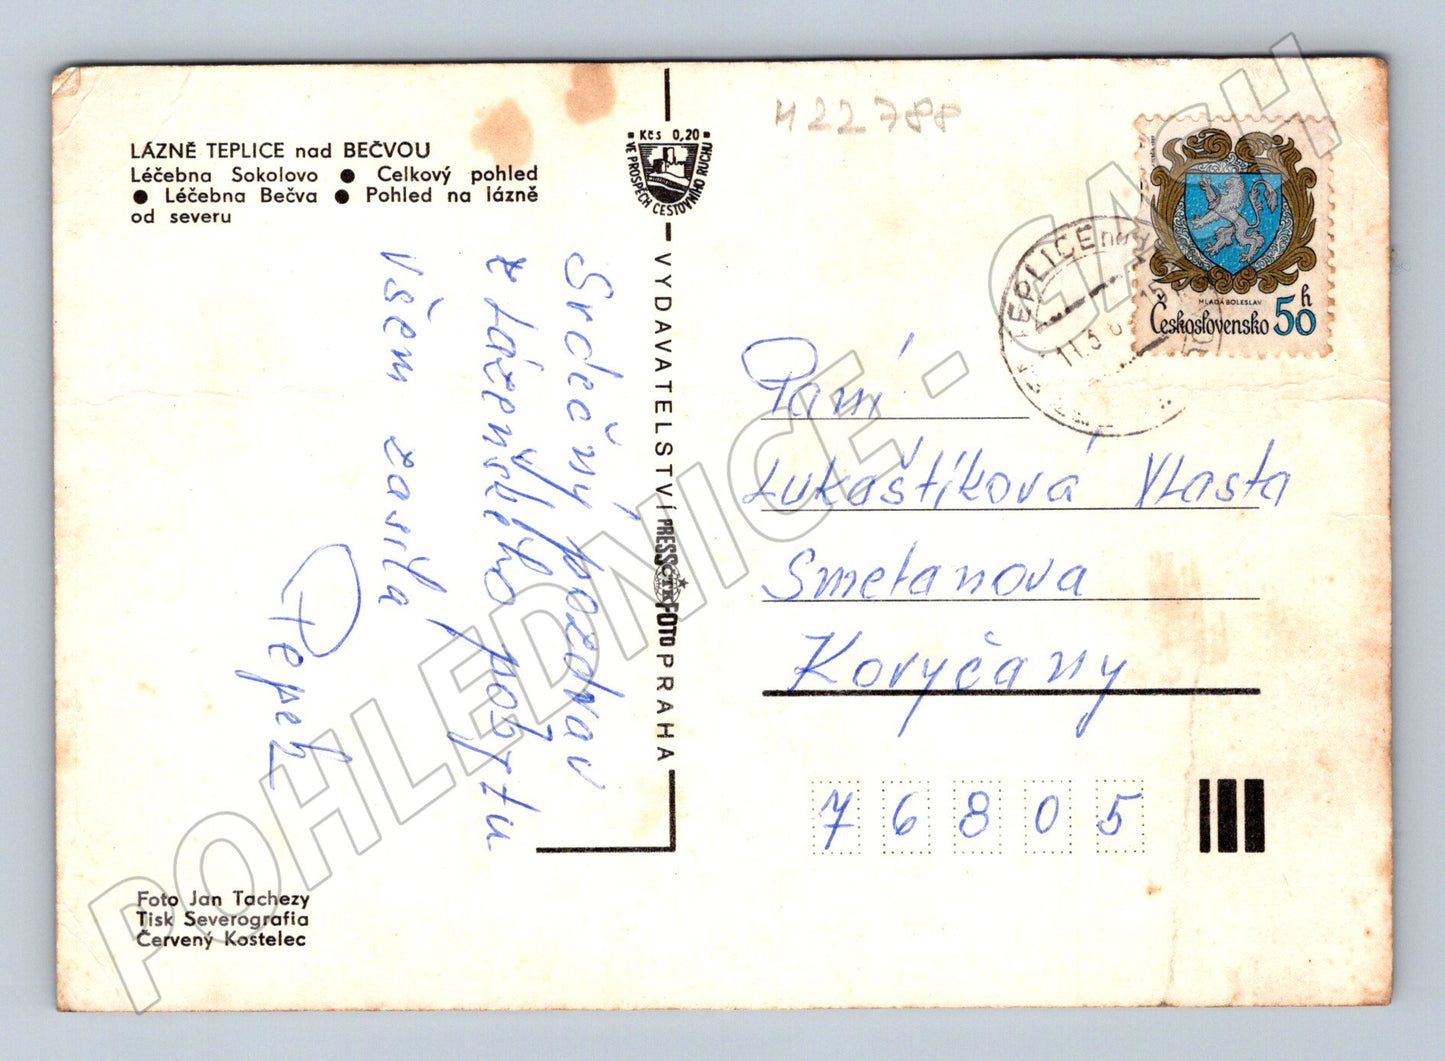 LÁZNĚ TEPLICE nad BEČVOU
Léčebna Sokolovo ● Celkový pohled
● Léčebna Bečva ● Pohled na lázně
od severu
Kčs 0,20
VE PROSPĚCH CESTOVNÍHO RUCHU
H22788
MLADÁ BOLESLAV
Československo 50 h
TEPLICE nad
11.3
15
VYDAVATELSTVÍ PRESSFOTO PRAHA
ČTK
Srdečný pozdrav
z lázeňského pobytu
všem zasílá
Pepek
Paní
Lukaštíková Vlasta
Smetanova
Koryčany
76805
Foto Jan Tachezy
Tisk Severografia
Červený Kostelec
POHLEDNICE - CASH